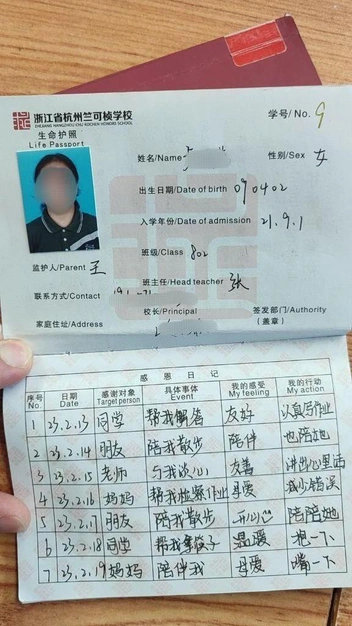 浙江省杭州竺可桢学校
ZHEJIANG HANGZHOU CHU KOCHEN HONORS SCHOOL
学号/No. 9
生命护照
Life Passport
姓名/Name
性别/Sex 女
出生日期/Date of birth 090402
入学年份/Date of admission 21.9.1
班级/Class 802
监护人/Parent 王
班主任/Head teacher 张
联系方式/Contact
校长/Principal
签发部门/Authority
(盖章)
家庭住址/Address
感恩日记
序号 No. 日期 Date 感谢对象 Target person 具体事体 Event 我的感受 My feeling 我的行动 My action
1 23.2.13 同学 帮我解答 友好 认真写作业
2 23.2.14 朋友 陪我散步 陪伴 也陪她
3 23.2.15 老师 与我谈心 友善 讲出心里话
4 23.2.16 妈妈 帮我检察作业 母爱 减少错误
5 23.2.17 朋友 陪我散步 开心 陪陪她
6 23.2.18 同学 帮我拿筷子 温暖 抱一下
7 23.2.19 妈妈 陪伴我 母爱 嘴一下